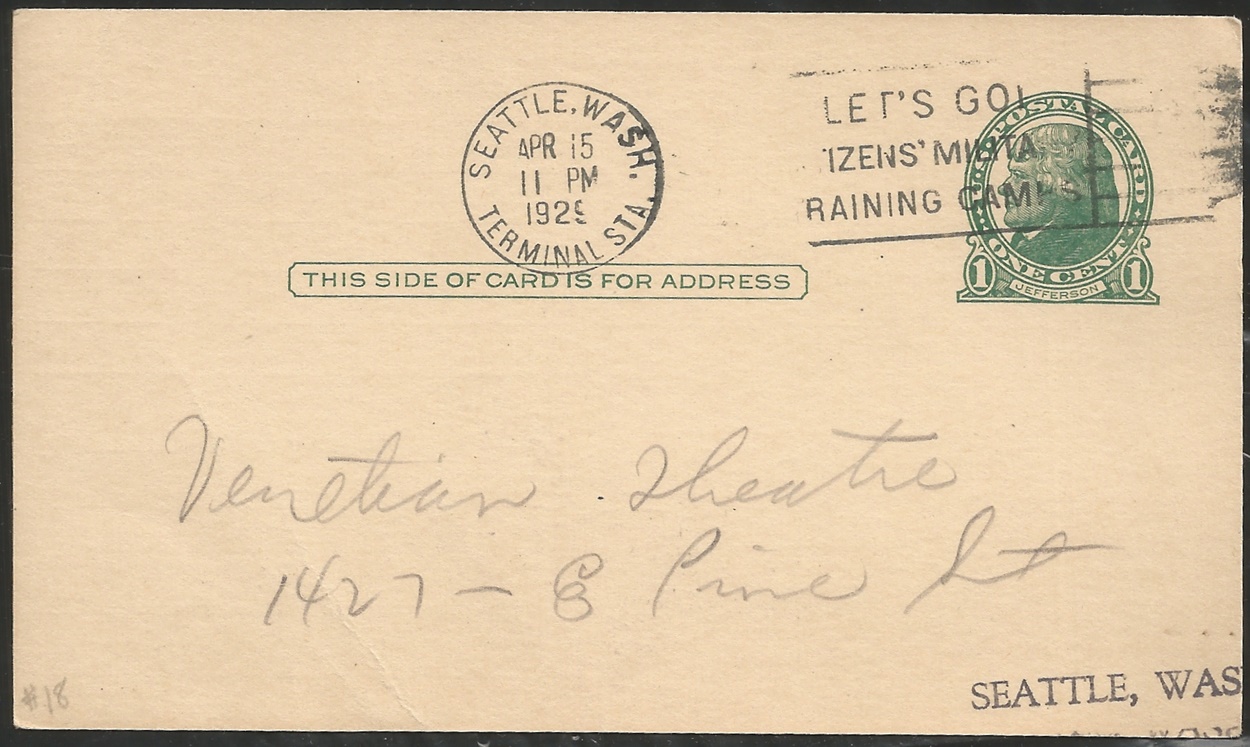 SEATTLE, WASH.
APR 15
11 PM
1929
TERMINAL STA.
LET'S GO!
IZENS' MILITA
RAINING CAMPS
U.S. POSTAL CARD
ONE CENT
1 JEFFERSON 1
THIS SIDE OF CARD IS FOR ADDRESS
Venetian Theatre
1427 - E Pine St
#18
SEATTLE, WAS